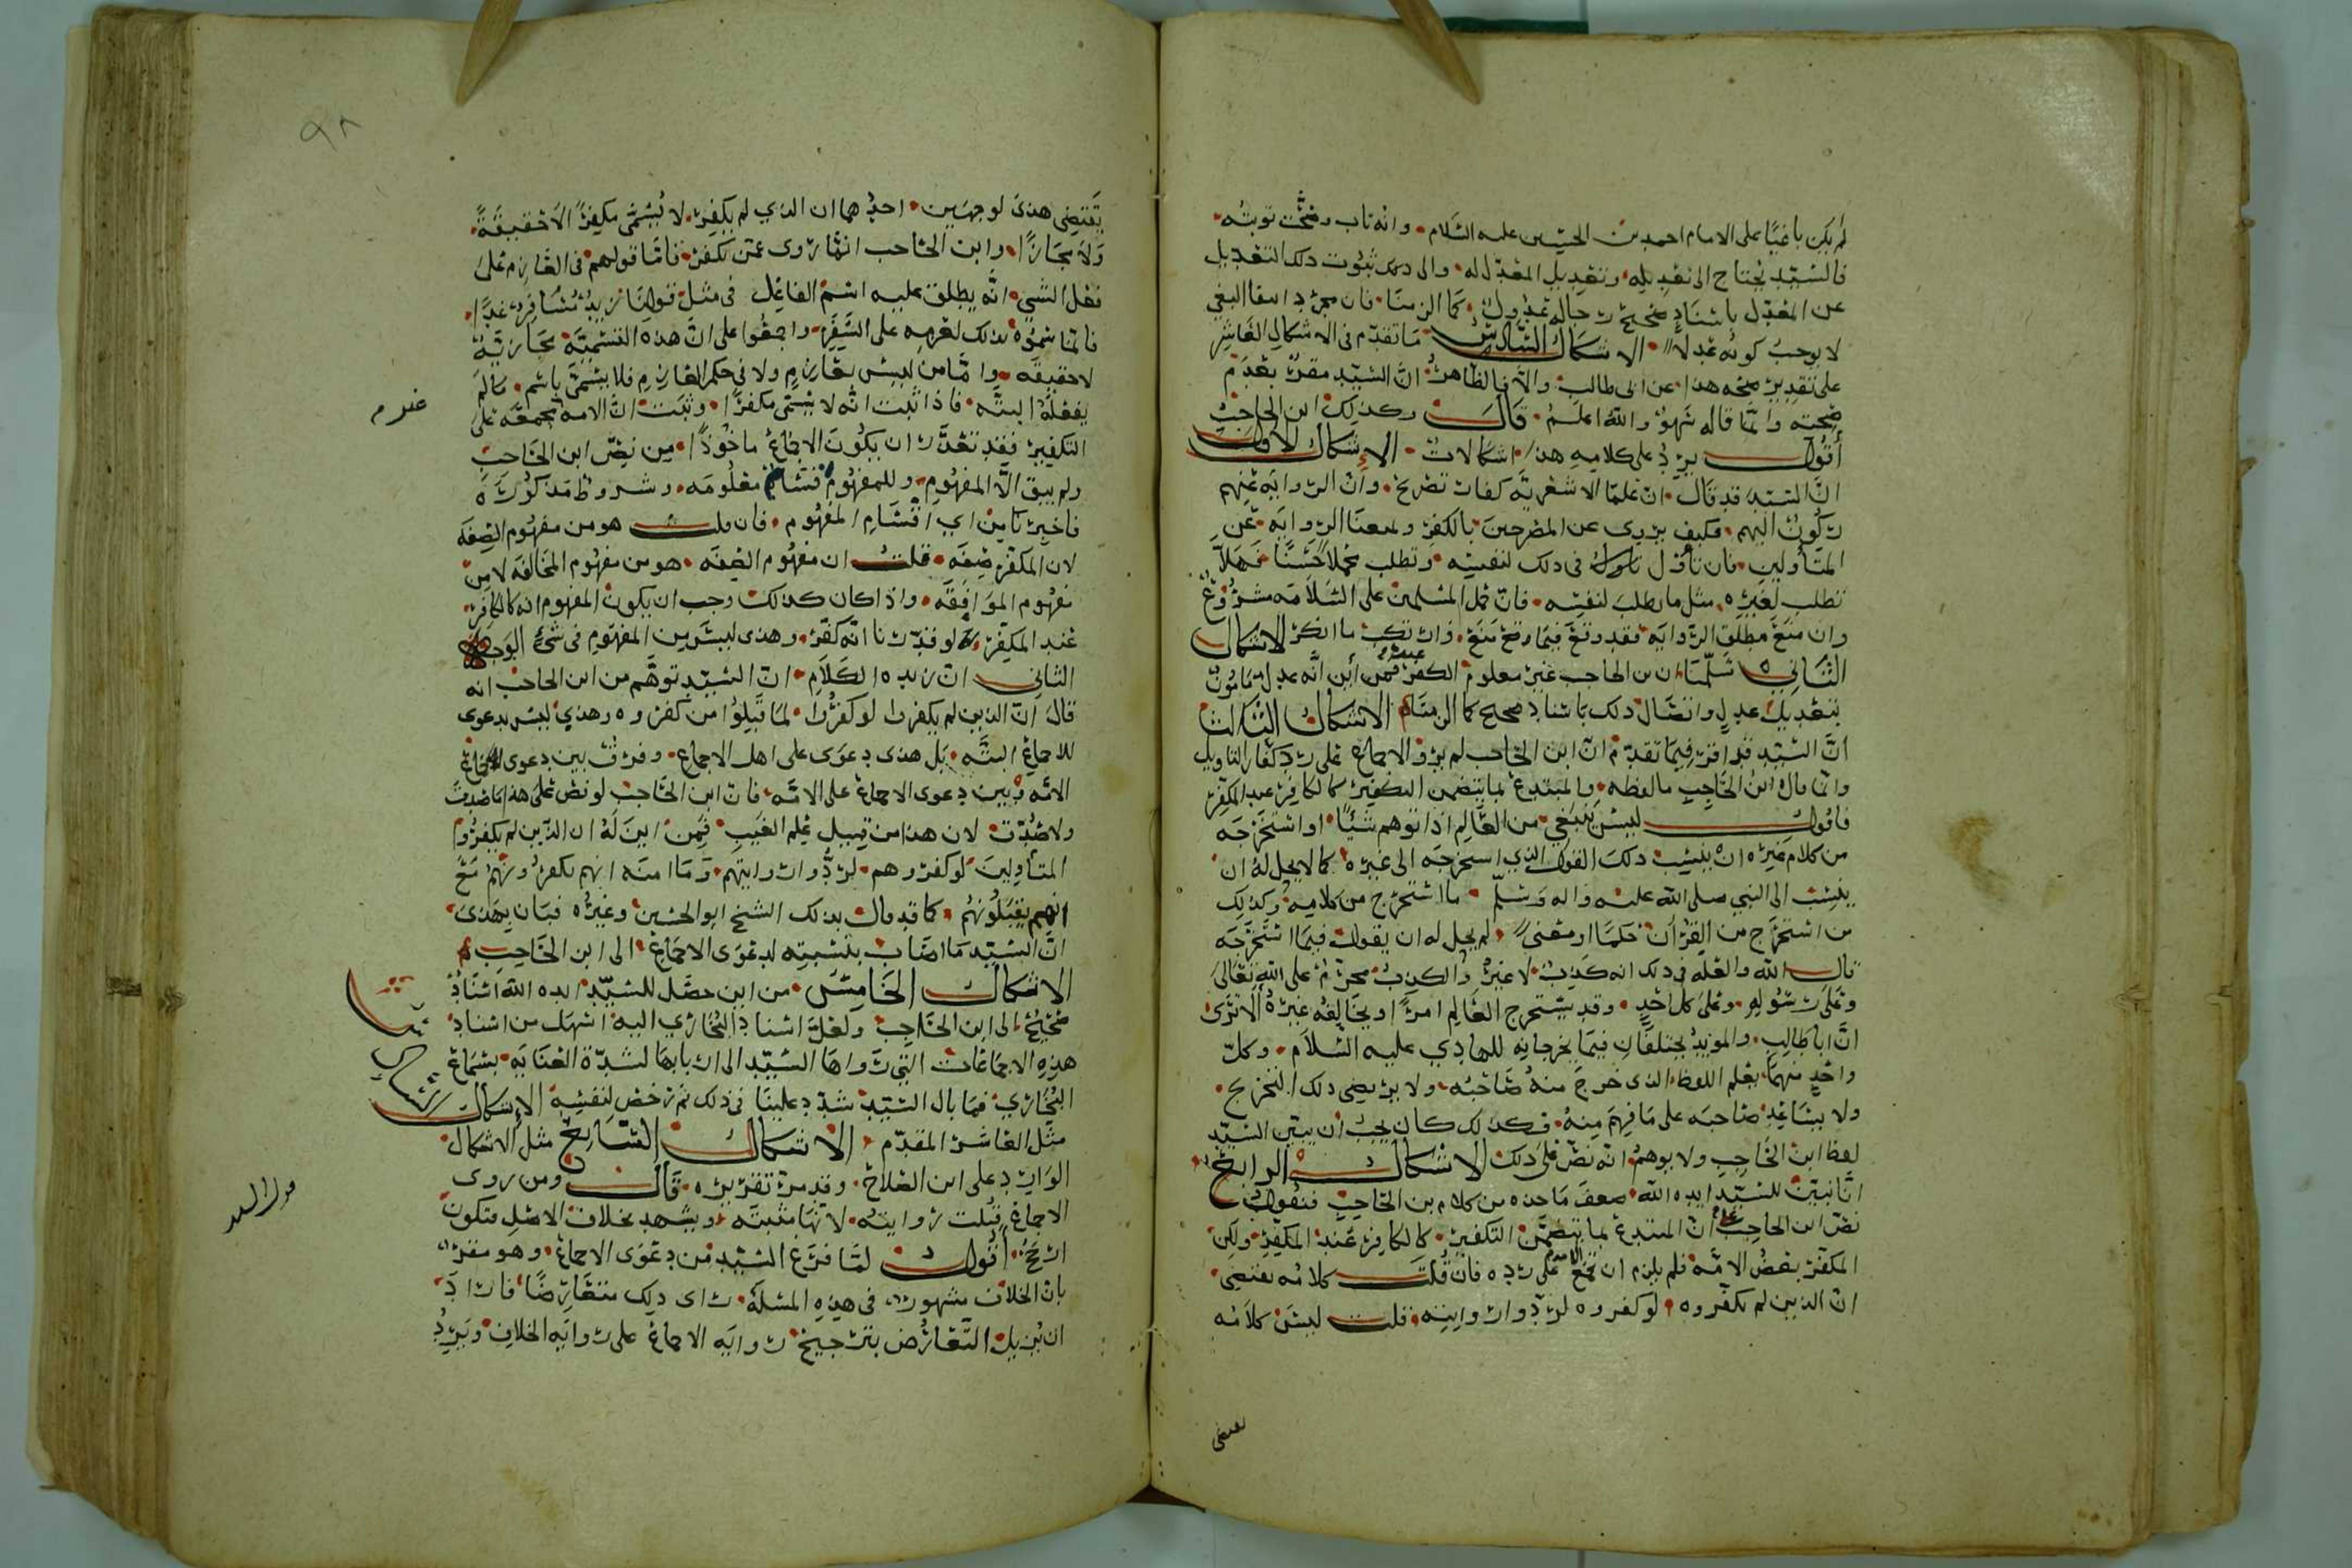 لم يكن باغيًا على الامام احمد بن الحسين عليه السلام وانه تاب وصحّت توبته
فالسيّد يحتاج الى تعديله وتعديل المعدّل له والى ثبوت ذلك التعديل
عن المعدّل باسنادٍ صحيح رجاله عدول كما الزمنا فان مجرّد انتفا البغي
لا يوجب كونه عدلًا الاشكال السادس ما تقدّم في الاشكال العاشر
على تقدير صحّه هذا عن ابي طالب والّا فالظاهر انّ السيّد مقرّ بعدم
صحّته وانّما قاله سَهوٌ والله اعلم قال وكذلك ابن الحاجب
أقول يرِدُ على كلامِهِ هذا اشكالاتٌ الإشكال الاول
انّ السيّد قد قال انّ علمَا الاشعريّه كفار تصريح وانّ الروايه عنهم
ركُونٌ اليهم فكيف يروي عن المصرحينَ بالكفر ومنعنا الروايَه عن
المتأولين فان تأوّل في ذلك لنفسِه وتطلب محملًا حَسَنًا فَهَلّا
تطلب لغيره مثل ما يطلب لنفسِه فانّ حمل المسلمين على السّلامَه مشروع
وان منع مطلق الروايَه فقد وقع فيما منَع وارتكب ما انكر الاشكال
الثاني سلّمنا ان ابن الحاجب غير معلوم الكفر فمن أين انّه عدل مامون
بتعديل عدلٍ واتصال ذلك باسنادٍ صحيح كما الزمنا الاشكال الثالث
انّ السيّد قد اقرّ فيما تقدّم انّ ابن الحاجب لم يروِ الاجماع على ردّ كفار التاويل
وانّما قال ابن الحَاجِب ما لفظه والمبتدع بما يتضمن التكفير كالكافِر عند المكفّر
فاقول ليس ينبغي من العَالِم اذا توهم شيئًا او استخرَجه
من كلام غيرِه انْ ينسب ذلك القول الذي استخرجَه الى غيره كما لا يحل له ان
ينسب الى النبي صلى الله عليه واله وسلّم ما استخرج من كلامِه وكذلك
من استخرَج من القرآن حكمًا او معنىً لم يحل له ان يقول فيما استخرَجه
قال الله والعله في ذلك انه كَذِبٌ لا غيرُ والكذبُ محرّمٌ على الله تعَالى
وعلى رسُولِهِ وعلى كل احدٍ وقد يستخرج العَالِم امرًا ويخَالِفُه غيرُه ألا ترَى
انّ ابا طالب والمؤيد يختلفَان فيما يخرجانِه للهادي عليه السّلام وكلّ
واحدٍ منهمَا يعلم اللفظ الذي خرجَ منهُ صَاحبُه ولا يرتضي ذلك التخريج
ولا يسَاعِد صَاحبَه على مَا فهِمَ مِنهُ فكذلك كان يجب أن يبيّن السيّد
لفظ ابن الحَاجِب ولا يوهمُ انه نصّ على ذلك الاشكال الرابع
انّا نبيّن للسيّد ايده الله ضعف مَا اخذه من كلام بن الحَاجِب فنقول
نصّ ابن الحاجب على انّ المبتدع بما يتضمّن التكفير كالكافِر عند المكفّر ولكن
المكفّر بعضُ الامّه فلم يلزم ان تجمع الامّة على ردّه فان قلت كلامُه يقتضِي
انّ الذين لم يكفّروه لو كفروه لردّوا روايته قلت ليسَ كلامُه
يقتضي
٩٨
يقتضِي هذى لوجهَين احدُهما ان الذي لم يكفِر لا يُسَمّى مكفِرًا لا حقيقةً
وَلا مجَازًا وابن الحَاجب انّما روى عمّن يكفر فامّا قولهم في العَازِم عَلى
فعل الشي انّه يطلق عليه اسمُ الفاعِل في مثل قولنا زيدٌ مُسَافِر غدًا
فانّما سَمّوه بذلك لعَزمِه على السَّفَر واجمعُوا على انّ هذه التسميَة مجَازيّةٌ
لا حقيقَه وامّا من ليس بعَازِم ولا في حكم العَازِم فلا يسَمّى باسم ما لم
يفعَلهُ البتّه فاذا ثبت انّه لا يسَمّى مكفرًا وثبت انّ الامه مجمعَه على عدم
التكفير فقد تعذّر ان يكُونَ الاجماعُ ماخُوذًا مِن نصّ ابن الحَاجب
ولم يبق الّا المفهُوم وللمفهُوم اقسَام معلُومَه وشروط مذكُورَه
فاخبِرنا مِن اي اقسَام المفهُوم فان قلت هو من مفهُوم الصِفَه
لان المكفّر صِفَه قلت ان مفهُوم الصِفَه هو من مفهُوم المخَالفَه لا مِن
مفهُوم الموَافقَه واذا كان كذلك وجب ان يكون المفهوم انه كالكافِر
عند المكفِر لو قدّرنا انّه كفّر وهذى ليسَ من المفهُوم في شيء الوجه
الثاني انّ زبده الكَلَام انّ السيّد توهّم من ابن الحاجب انه
قالَ انّ الذين لم يكفروا لو كفرُوا لمَا قبِلُوا من كفروه وهذي ليسَ بدعوى
للاجماع البتّه بَل هذى دعوَى على اهل الاجماع وفرقٌ بين دعوى اجماع
الامّه وبين دعوى الاجماع على الامّه فانّ ابن الحَاجب لو نص على هذا ما صَدق
ولا صُدّق لان هذا من قبيل عِلم الغَيبِ فَمِن اينَ لهُ ان الذين لم يكفرُوا
المتأوِلينَ لو كفروهم لردُّوا روايتهم وَمَا امنَه انهم يكفرونهم مَع
انهم يقبَلُونَهُم كما قد قال بذلك الشيخ ابو الحسَين وغيرُه فبَان بهَذى
انّ السيّد مَا اصَاب بنسبتِه لدعوَى الاجماعِ الى ابن الحَاجِب
الاشكال الخَامِسُ من اين حصَل للسيّد ايده الله اسنادٌ
صَحِيحٌ الى ابن الحَاجِب ولعلّ اسنادَ البُخَاري اليه اسهَل من اسنادِ
هذِهِ الاجماعَات التي رَواهَا السيّد الى اربابهَا لشدّة العنَايَه بسَماع
البُخَاري فمَا بال السيّد شدّد علينَا في ذلك ثم رخّص لنفسِه الإشكال السادس
مثل العَاشر المقدّم الاشكال السّابع مثل الاشكال
الوارد على ابن الصَلاح وقد مرّ تقريره قال ومن روى
الاجماعَ قبُلت روايتُه لانّهَا مثبتَه ويشهد بخلاف الاصْل فتكون
ارجَحُ أقول لمّا فرَغ السيّد من دعوَى الاجماع وهو مقرّ
بان الخلاف مشهور في هذِهِ المسَلَه راى ذلك متعَارِضًا فارَادَ
ان يُزيل التّعَارُض بترجيح روايَه الاجماع على روايَه الخلاف ويَردُ
قول السيد